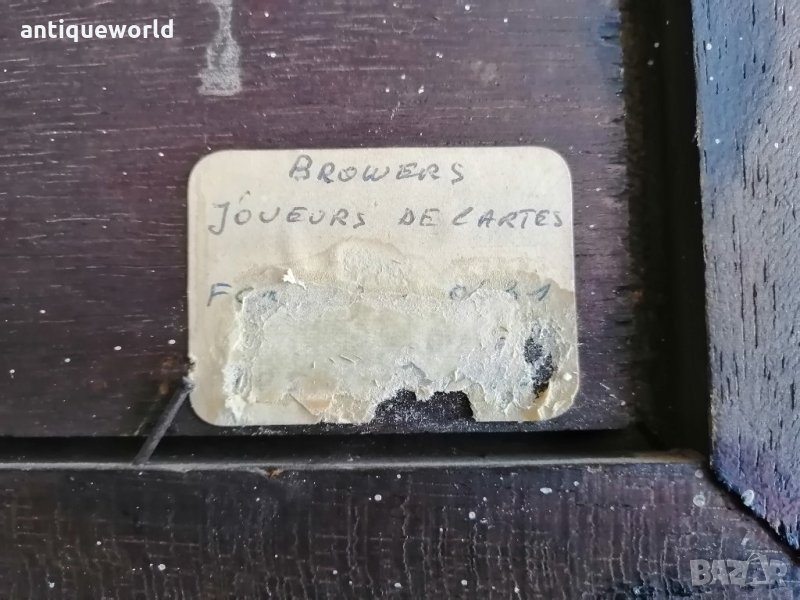 antiqueworld
BROWERS
JOUEURS DE CARTES
BAZAR